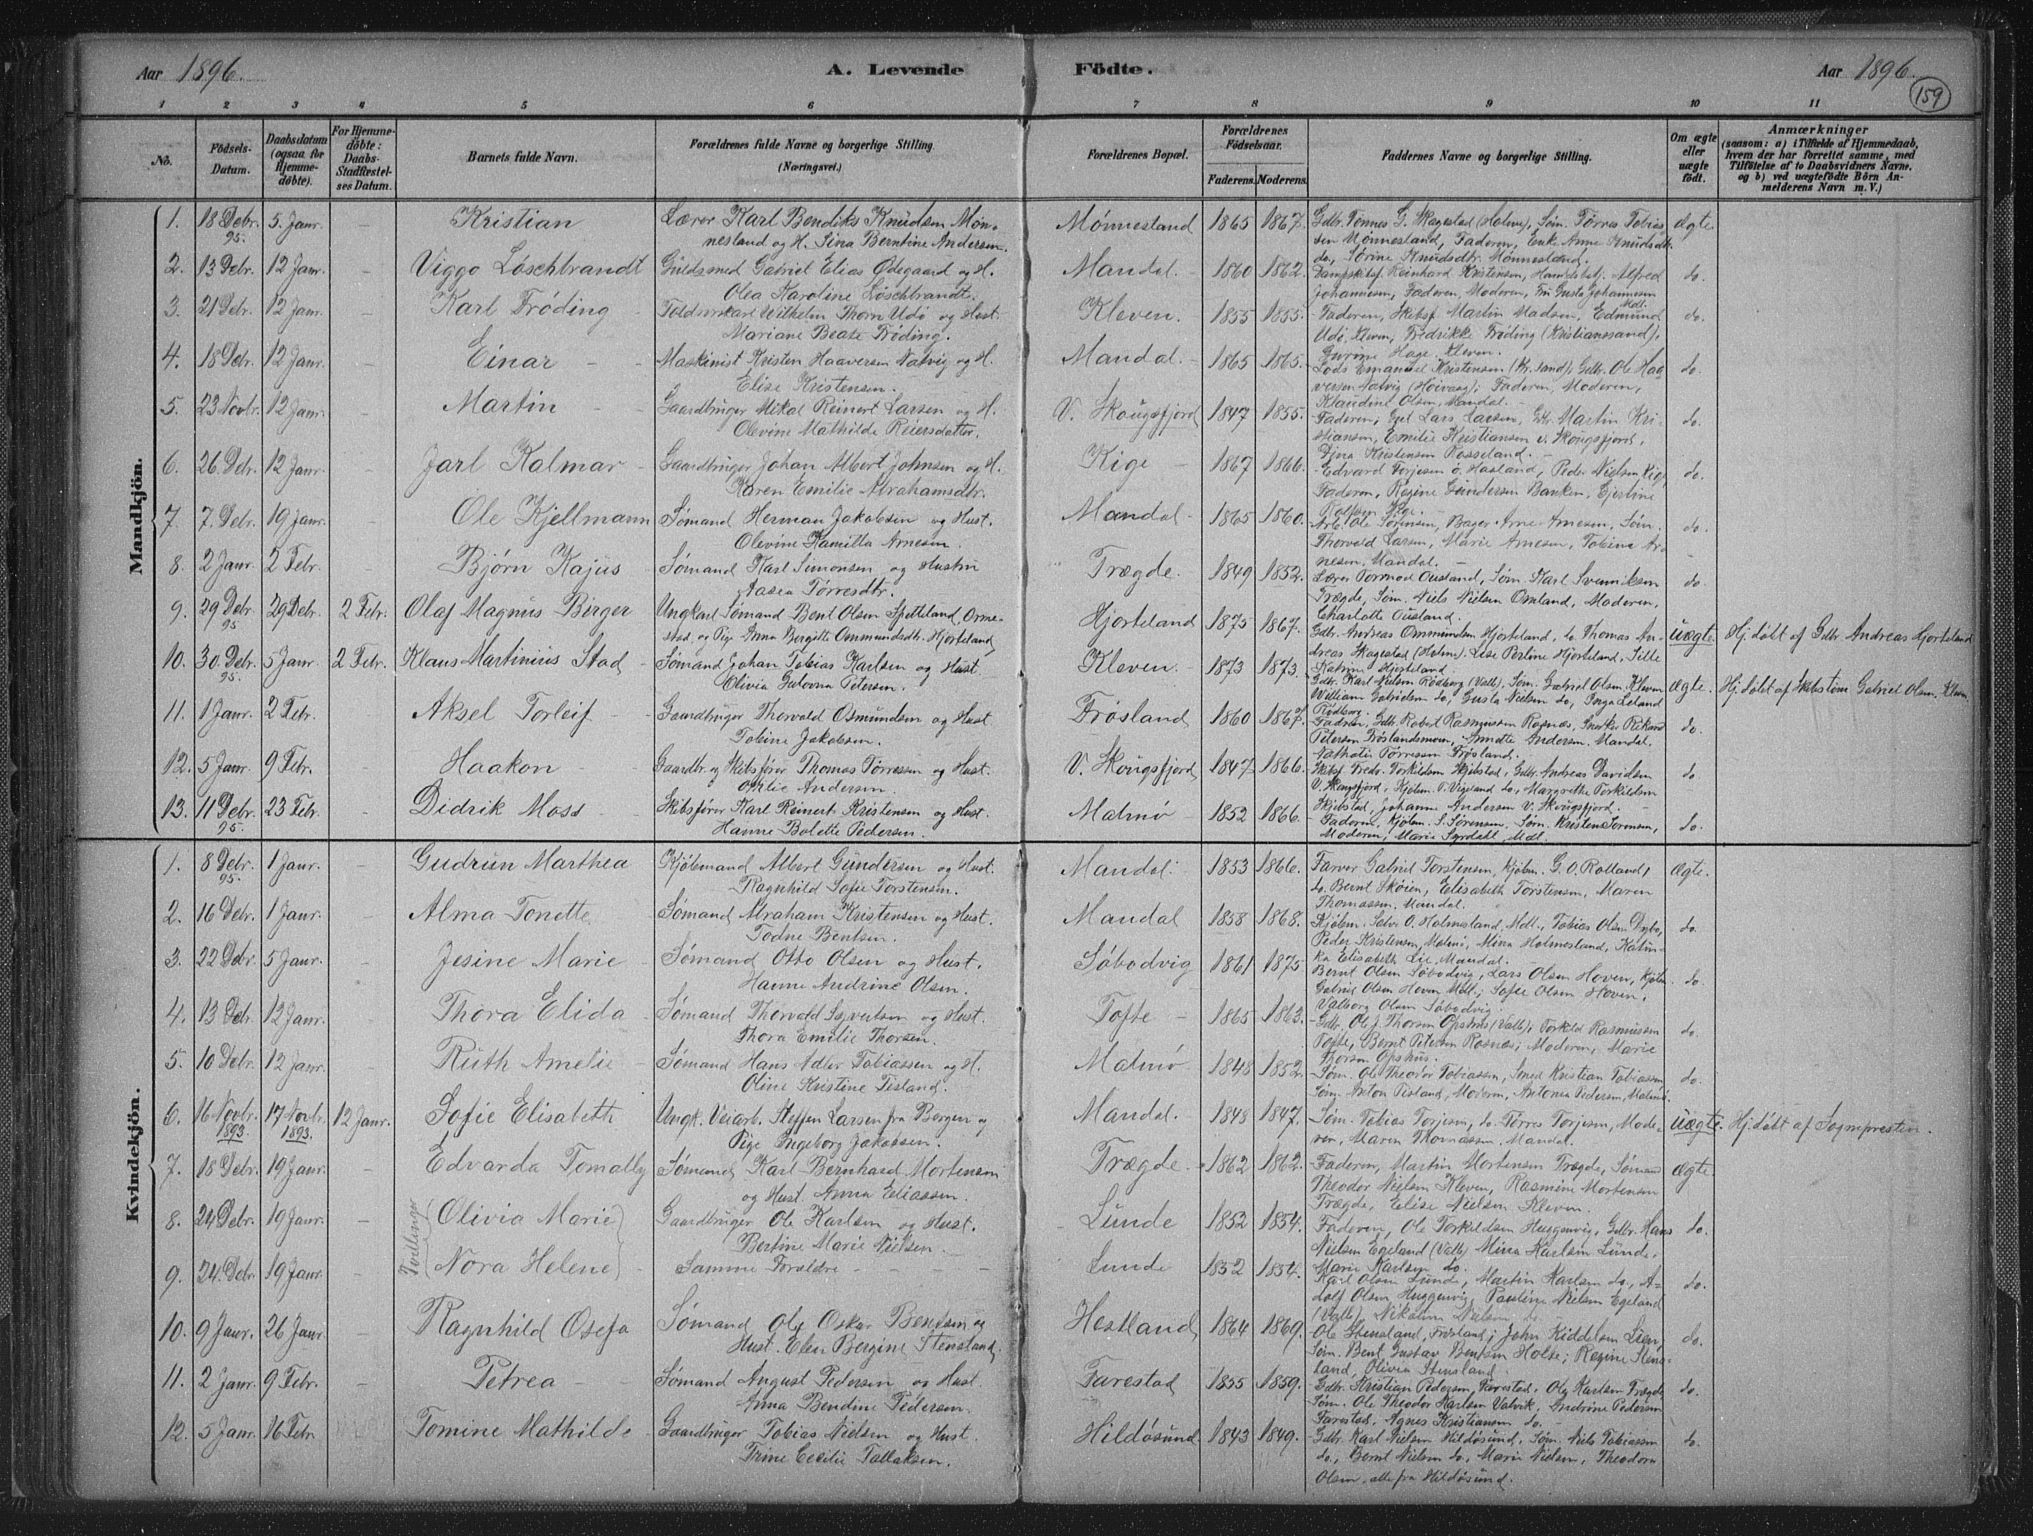 Aar 1896. A. Levende Fødte. Aar 1896.
159
1 2 3 4 5 6 7 8 9 10 11
No. Födsels-Datum. Daabsdatum (ogsaa for Hjemmedöbte). For Hjemmedöbte: Daabs-Stadfæstelses Datum. Barnets fulde Navn. Forældrenes fulde Navne og borgerlige Stilling. (Næringsvei.) Forældrenes Bopæl. Forældrenes Fødselsaar. Faderens. Moderens. Faddernes Navne og borgerlige Stilling. Om ægte eller uægte født. Anmærkninger (saasom: a) i Tilfælde af Hjemmedaab, hvem der har forrettet samme, med Tilföielse af to Daabsvidners Navne. og b) ved uægtefödte Börn Anmelderens Navn m. V.)
Mandkjön.
1. 18 Debr. 95. 5. Janr. – Kristian Lærer Karl Bendiks Knudsen Mønnesland og H. Sina Berntine Andersen. Mønnesland 1865 1867. Gdbr. Tønnes G. Skagestad (Holme), Søm. Tørres Tobiassen Mønnesland, Faderen, Enke Anne Knudsdtr. do, Sørine Knudsdtr. Mønnesland. Ægte
2. 13 Debr. 12 Janr. – Viggo Løschbrandt Guldsmed Gabriel Elias Ødegaard og H. Olea Karoline Løschbrandt. Mandal. 1860 1862. Dampskibsf. Reinhard Kristensen, Handelsbetj. Alfred Johannesen, Faderen, Moderen, Frk Gusta Johannesen Mdl. do.
3. 21 Debr. 12 Janr. – Karl Frøding Toldrorskarl Wilhelm Thorn Udø og Hust. Mariane Beate Frøding. Kleven. 1855 1855. Faderen, Skibsf. Martin Madsen, Edmund Udø, Kleven, Fredrikke Frøding (Kristianssand), Hage, Kleven. do.
4. 18 Debr. 12 Janr. – Einar Maskinist Kristen Haaversen Natvig og H. Elise Kristensen. Mandal. 1865 1865. Lods Emanuel Kristensen (Kr.sand), Gdbr. Ole Haaversen Natvig (Høivaag), Faderen, Moderen, Klaudine Olsen, Mandal. do.
5. 23 Novbr. 12 Janr. – Martin Gaardbruger Mikal Reinert Larsen og H. Olevine Mathilde Reiersdatter. V. Skougsfjord 1847 1855. Faderen, Lars Larsen, Martin Kristiansen, Emilie Kristiansen v. Skougsfjord, Kristensen Rosseland. do.
6. 26 Debr. 12 Janr. – Jarl Kalmar Gaardbruger Johan Albert Johnsen og H. Karen Emilie Abrahamsdtr. Kige 1867 1866. Edvard Torjesen ø. Hasland, Peder Nielsen Kige, Faderen, Regine Gundersen Banken, Rolfsen Kige. do.
7. 7 Debr. 19 Janr. – Ole Kjellmann Sømand Herman Jakobsen og Hust. Olevine Kamilla Arnesen. Mandal. 1865 1860. Arb. Ole Sørensen, Bager Arne Arnesen, Søm. Thorvald Larsen, Marie Arnesen, Tobina Arnesen, Mandal. do.
8. 2 Janr. 2 Febr. – Bjørn Kajus Sømand Karl Simonsen og Hustru Aasea Tørresdtr. Trægde. 1849 1852. Lærer Tormod Ousland, Søm. Karl Svenniksen Trægde, Søm. Niels Nielsen Omland, Moderen, Charlotte Ousland. do.
9. 29 Debr. 95 29 Debr. 2 Febr. Olaf Magnus Birger Ungkarl Sømand Bent Olsen Spetteland, Ormestad, og Pige Anna Bergitte Ommundsdtr. Hjorteland Hjorteland 1875 1867. Gdbr. Andreas Ommundsen Hjorteland, do Thomas Andreas Skagestad (Holm), Lise Bertine Hjorteland, Sille Katrine Hjorteland. Uægte Hj.døbt af Gdbr. Andreas Hjorteland
10. 30 Debr. 95 5 Janr. 2 Febr. Klaus Martinius Stad Sømand Johan Tobias Karlsen og Hust. Olivia Gulovna Petersen. Kleven. 1873 1873. Gdbr. Karl Nielsen Rødberg (Valle), Søm. Gabriel Olsen Kleven, William Gabrielsen do, Gusta Nielsen do, Inga Leland Rødberg. Ægte. Hj.døbt af Skibstøm. Gabriel Olsen, Kleven
11. 1 Janr. 2 Febr. – Aksel Torleif Gaardbruger Thorvald Osmundsen og Hust. Tobine Jakobsen. Frøsland 1860 1867. Faderen, Gdbr. Robert Rasmussen Rosnæs, Snedker Rikard Petersen Frøslandsmoen, Annette Andersen, Mandal, Nathalie Tørresen Frøsland. do.
12. 5 Janr. 9 Febr. Haakon Gaardbr. og Skibsfører Thomas Tørressen og Hust. Othlie Andersen. V. Skougsfjord 1847 1866. Skibsf. Fredr. Torkildsen Skjebstad, Gdbr. Andreas Davidsen V. Skougsfjord, Kjøbm. T. Vigeland do, Margrethe Torkildsen Skjebstad, Johanne Andersen V. Skougsfjord. do
13. 11 Debr. 95 23 Febr. Didrik Moss Skibsfører Karl Reinert Kristensen og Hust. Hanne Bolette Pedersen. Malmø 1852 1866. Faderen, Kjøbm. S. Sørensen, Søm. Kristen Sørensen, Moderen, Marie Syrdahl, Mdl. do.
Kvindekjön.
1. 8 Debr. 95. 1 Janr. – Gudrun Marthea Kjøbmand Albert Gundersen og Hust. Ragnhild Sofie Torstensen. Mandal. 1853 1866. Farver Gabriel Torstensen, Kjøbm. G. O. Rolland, do. Bernt Skøien, Elisabeth Torstensen, Maren Thomassen, Mandal. Ægte.
2. 16 Debr. 1 Janr. – Alma Tonette Sømand Abraham Kristensen og Hust. Todne Bentsen. Mandal 1858 1868. Kjøbm. Salve O. Holmesland, Mdl., Tobias Olsen Dybo, Peder Kristensen, Malmø, Mina Holmesland, Katinka Elisabeth Lie, Mandal. do.
3. 22 Debr. 5 Janr. – Jesine Marie Sømand Otto Olsen og Hust. Hanne Andrine Olsen. Søbodvig 1861 1875 Bernt Olsen Søbodvig, Lars Olsen Hoven, Kjøbm. Gabriel Olsen Hoven Mdl., Sofie Olsen Hoven, Valborg Olsen Søbodvig. do.
4. 13 Debr. 12 Janr. – Thora Elida Sømand Thorvald Syvertsen og Hust. Thora Emilie Thorsen. Tofte 1865 1863. Gdbr. Ole J. Thorsen Opshus (Valle), Torkild Rasmussen Tofte, Bernt Petersen Rosnæs, Moderen, Marie Thorsen Opshus. do.
5. 10 Debr. 12 Janr. – Ruth Amelie Sømand Hans Adler Tobiassen og H. Oline Kristine Tisland. Malmø 1848 1852. Søm. Ole Theodor Tobiassen, Smed Kristian Tobiassen, Søm. Anton Tisland, Moderen, Antonia Pedersen, Malmø. do.
6. 16 Novbr. 1893 17 Novbr. 1893. 12 Janr. Sofie Elisabeth Ungk. Veiarb. Steffen Larsen fra Bergen og Pige Ingeborg Jakobsen. Mandal. 1848 1847. Søm. Tobias Torjesen, do. Tørres Torjesen, Moderen, Maren Thomassen, Mandal. Uægte. Hj.døbt af Sognepresten.
7. 18 Debr. 19 Janr. – Edvarda Tomally Sømand Karl Bernhard Mortensen og Hust. Anna Eliassen. Trægde. 1862 1862. Faderen, Martin Mortensen Trægde, Sømand Theodor Nielsen Kleven, Rasmine Mortensen Trægde, Elise Nielsen Kleven. Ægte
8. 24 Debr. 19 Janr. – Tvillinger Olivia Marie Gaardbruger Ole Karlsen og Hust. Bertine Marie Nielsen. Lunde 1852 1854. Faderen, Ole Torkildsen Huggenvig, Gdbr. Hans Nielsen Egeland (Valle), Mina Karlsen Lunde, Marie Karlsen do. do.
9. 24. Debr. 19 Janr. – Nora Helene Samme Forældre Lunde 1852 1854. Karl Olsen Lunde, Martin Karlsen do., Adolf Olsen Huggenvig, Pauline Nielsen Egeland (Valle), Nikoline Nielsen do. do.
10. 9 Janr. 26 Janr. – Ragnhild Osefa Sømand Ole Oskar Bentsen og Hust. Elen Bergine Stensland. Hestland 1864 1869. Ole Stensland, Frøsland, John Kiddelsen Lien, Søm. Bent Gustav Bentsen Holte, Regine Stensland, Olivia Stensland. do.
11. 2 Janr. 9 Febr. – Petrea Sømand August Pedersen og Hust. Anna Bendine Pedersen. Farestad 1855 1859. Gdbr. Kristian Pedersen, Farestad, Ole Karlsen Trægde, Søm. Ole Theodor Karlsen Valvik, Andrine Pedersen Farestad, Agnes Kristiansen do. do.
12. 5 Janr. 16 Febr. Tomine Mathilde Gaardbruger Tobias Nielsen og Hust. Trine Cecilie Tallaksen. Hildøsund 1843 1849. Gdbr. Karl Nielsen Hildøsund, Søm. Niels Tobiassen do, Bernt Nielsen do, Marie Nielsen, Theodora Olsen, alle fra Hildøsund. do.